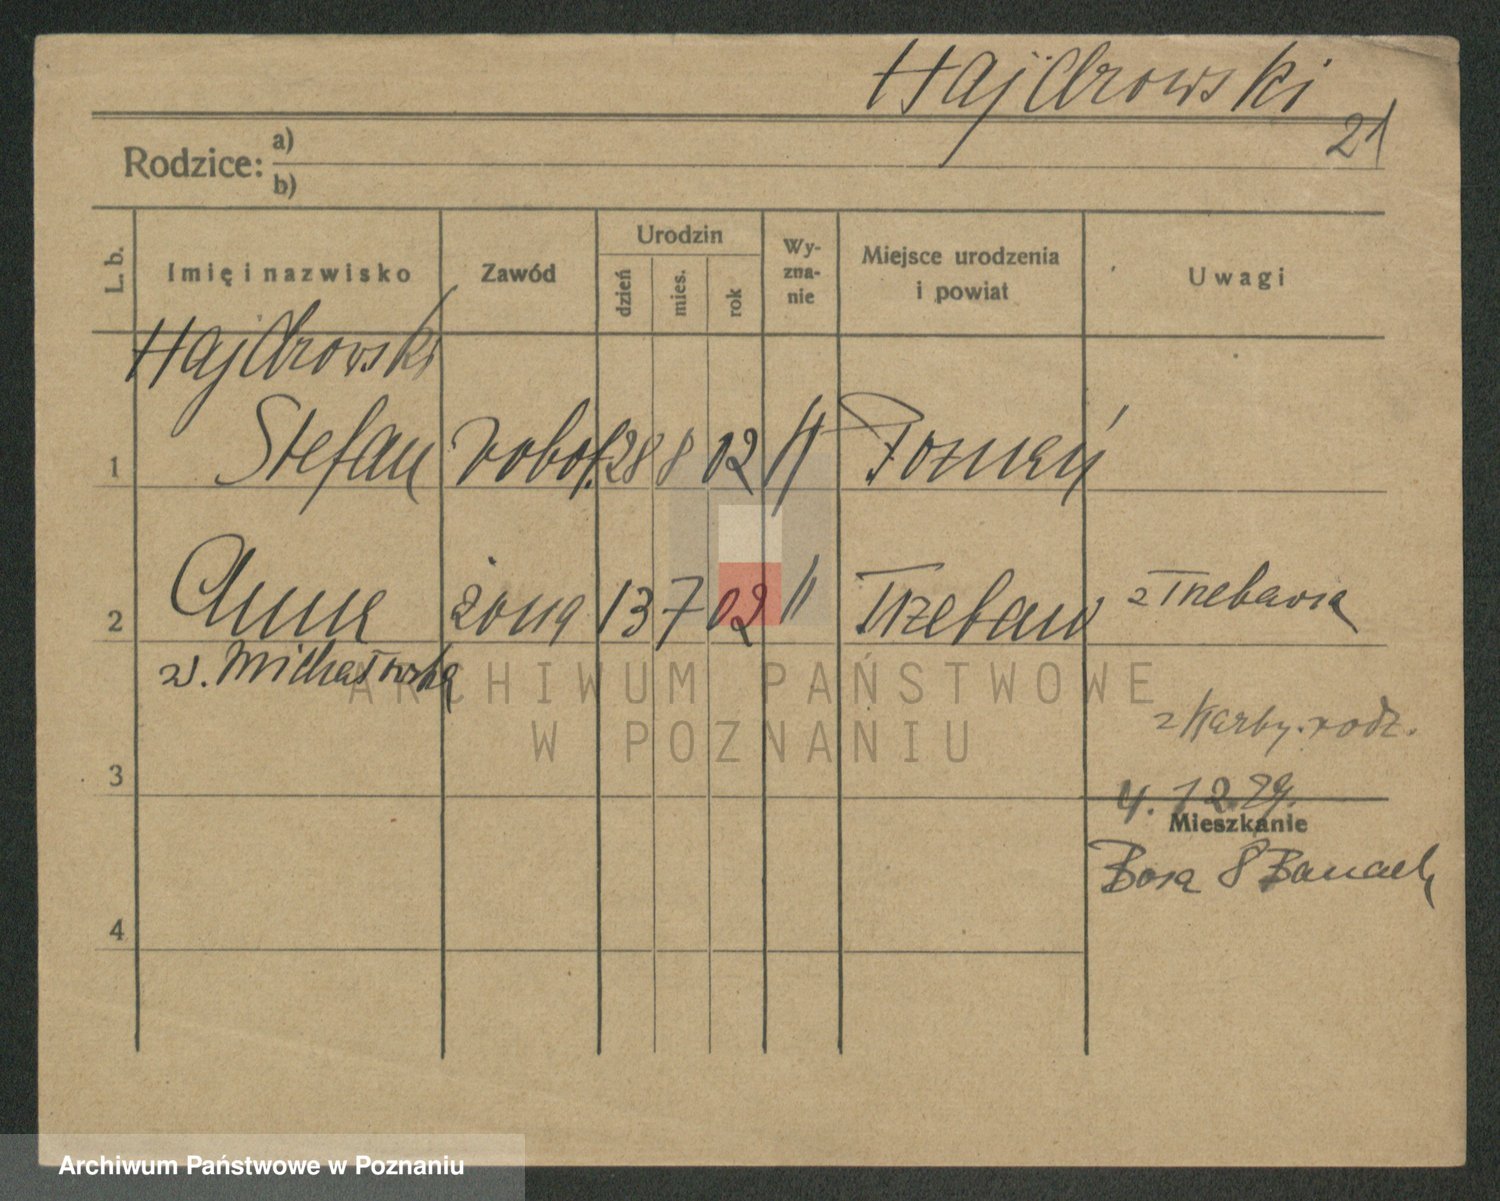 Hajdrowski
21
Rodzice: a)
b)
L. b. Imię i nazwisko Zawód Urodzin dzień mies. rok Wyznanie Miejsce urodzenia i powiat Uwagi
Hajdrowski
1 Stefan robot. 28 8 02 Poznań
2 Anna żona 13 7 02 " Trzebaw z Trzebawia
ARCHIWUM PAŃSTWOWE
W POZNANIU
z rodz.
3
4. 12. 29.
Mieszkanie
Bosa 8
4
Archiwum Państwowe w Poznaniu